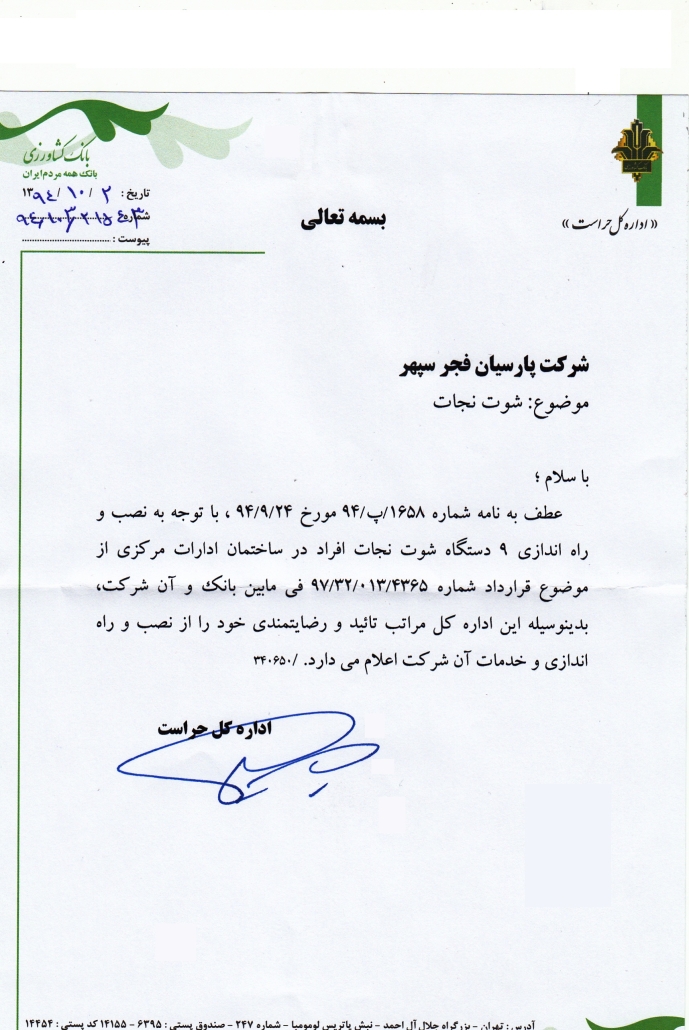 بانک کشاورزی
بانک همه مردم ایران
تاریخ : ۱۳۹۴/۱۰/۲
شماره
پیوست :
بسمه تعالی
« اداره کل حراست »
شرکت پارسیان فجر سپهر
موضوع: شوت نجات
با سلام ؛
عطف به نامه شماره ۱۶۵۸/پ/۹۴ مورخ ۹۴/۹/۲۴ ، با توجه به نصب و
راه اندازی ۹ دستگاه شوت نجات افراد در ساختمان ادارات مرکزی از
موضوع قرارداد شماره ۹۷/۳۲/۰۱۳/۴۳۶۵ فی مابین بانک و آن شرکت،
بدینوسیله این اداره کل مراتب تائید و رضایتمندی خود را از نصب و راه
اندازی و خدمات آن شرکت اعلام می دارد. /۳۴۰۶۵۰
اداره کل حراست
آدرس : تهران - بزرگراه جلال آل احمد - نبش پاتریس لومومبا - شماره ۲۴۷ - صندوق پستی : ۶۳۹۵ - ۱۴۱۵۵ کد پستی : ۱۴۴۵۴